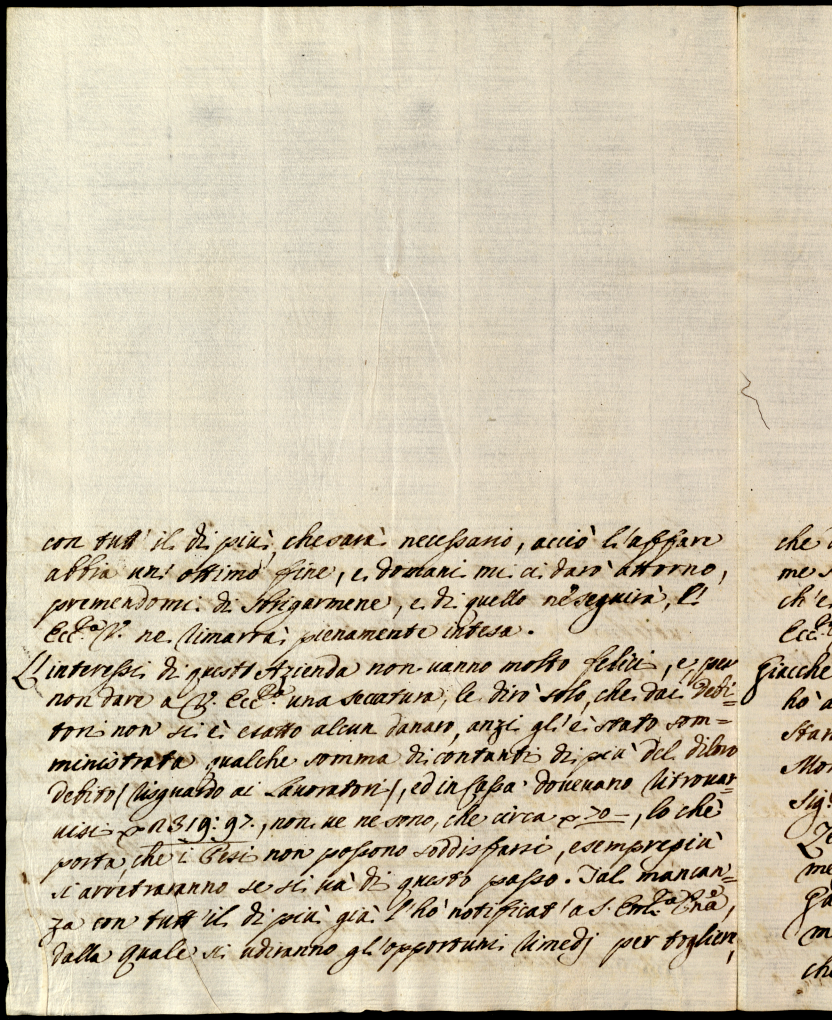 con tutt' il di più, che sarà necessario, acciò l'affare
abbia un' ottimo fine, e domani mi ci darò attorno,
premendomi di sbrigarmene, e di quello ne seguirà, l'
Ecc.za V. ne rimarrà pienamente intesa.
L'interessi di quest'Azienda non vanno molto felici, e per
non dare a V. Ecc.za una seccatura, le dirò solo, che dai Debi=
tori non si è esatto alcun danaro, anzi gl'è stato som=
ministrata qualche somma di contanti di più del di loro
debito (risguardo ai Lavoratori), ed in Cassa dovevano ritrovar
visi 319:97, non ve ne sono, che circa 70=, lo chè
porta, che i Pesi non possono soddisfarsi, e sempre più
si arretraranno se si và di questo passo. Tal mancan=
za con tutt'il di più già l'hò notificat'a S. Em.za
dalla quale si udiranno gl'opportuni rimedj per togliere,
che
me s
ch'è
Ecc.
Giacche
hò a
Stan
Mon
Sig.
me
m
ch